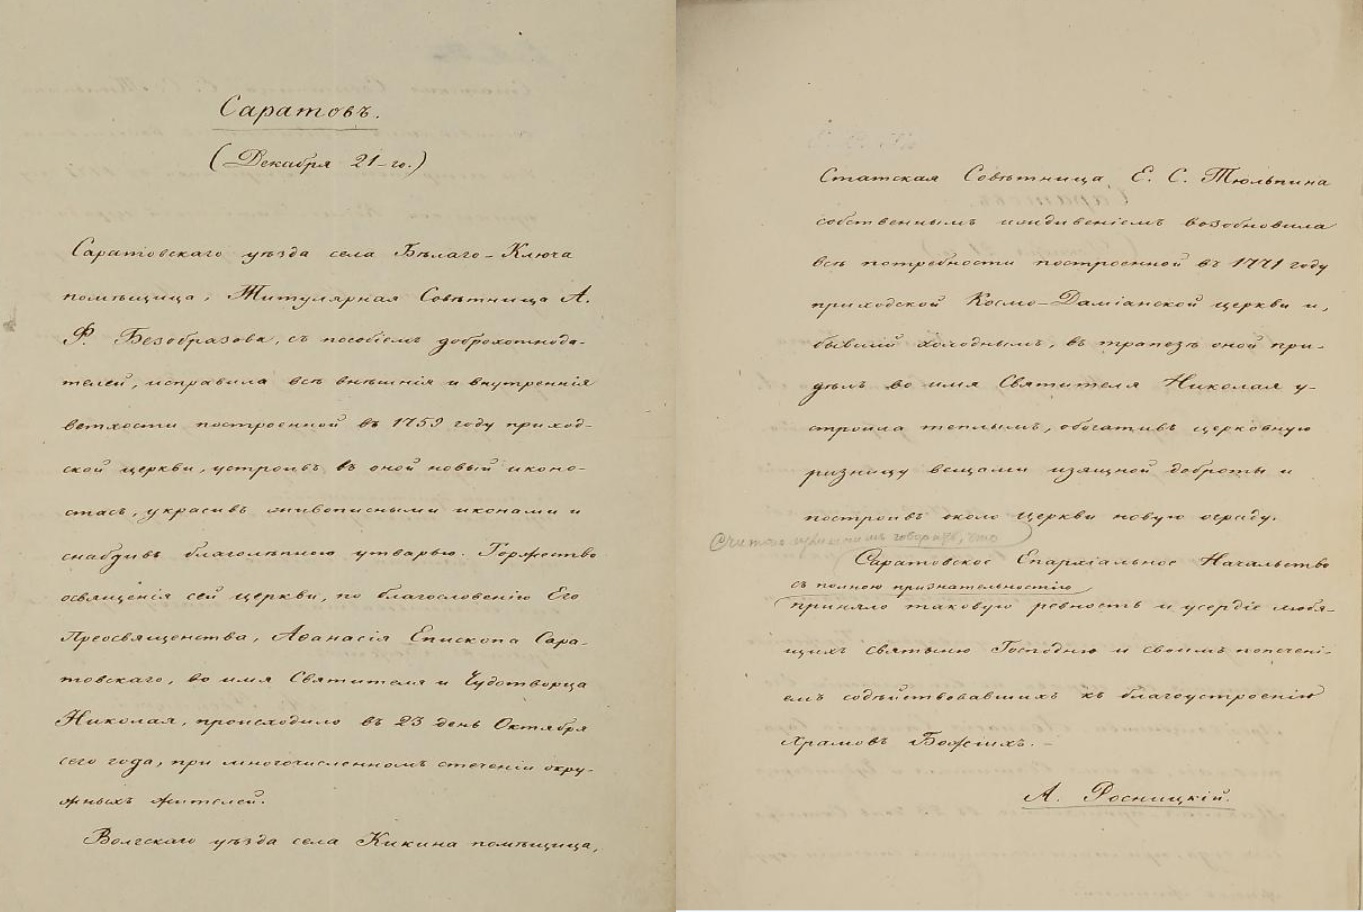 Саратовъ.
(Декабря 21-го.)
Саратовскаго уѣзда села Бѣлаго-Ключа
помѣщица, Титулярная Совѣтница А.
Ф. Безобразова, съ пособіемъ доброхотнода-
телей, исправила всѣ внѣшнія и внутреннія
ветхости построенной въ 1759 году приход-
ской церкви, устроивъ въ оной новый иконо-
стасъ, украсивъ живописными иконами и
снабдивъ благолѣпною утварью. Торжество
освященія сей церкви, по благословенію Его
Преосвященства, Аѳанасія Епископа Сара-
товскаго, во имя Святителя и Чудотворца
Николая, происходило въ 23 день Октября
сего года, при многочисленномъ стеченіи окру-
жныхъ жителей.
Волгскаго уѣзда села Кикина помѣщица,
Статская Совѣтница Е. С. Тюльпина
собственнымъ иждивеніемъ возобновила
всѣ потребности построенной въ 1771 году
приходской Космо-Даміанской церкви и,
бывшій холоднымъ, въ трапезѣ оной при-
дѣлъ во имя Святителя Николая у-
строила теплымъ, обогативъ церковную
ризницу вещами изящной доброты и
построивъ около Церкви новую ограду.
что
Саратовское Епархіальное Начальство
съ полною признательностію
приняло таковую ревность и усердіе любя-
щихъ святыню Господню и своимъ попечені-
емъ содѣйствовавшихъ къ благоустроенію
Храмовъ Божіихъ.-
А. Росницкій.